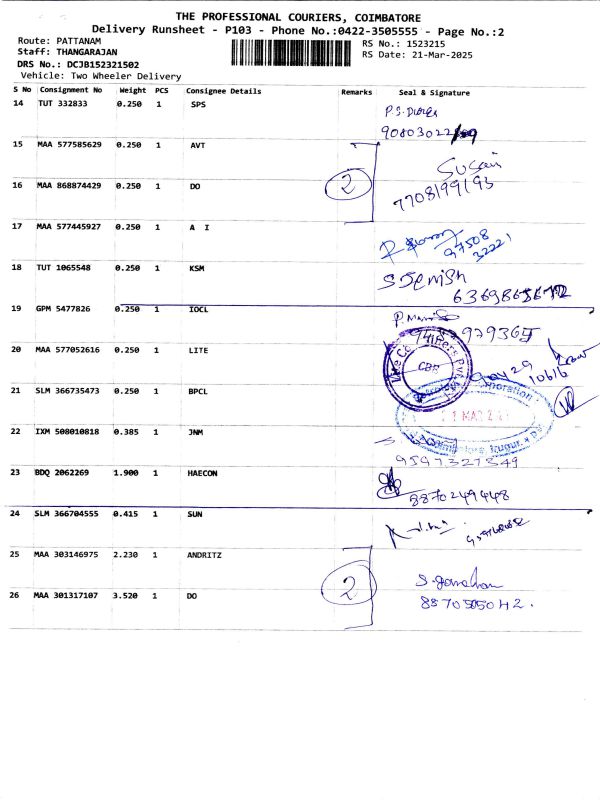 THE PROFESSIONAL COURIERS, COIMBATORE
Delivery Runsheet - P103 - Phone No.:0422-3505555 - Page No.:2
Route: PATTANAM
RS No.: 1523215
Staff: THANGARAJAN
RS Date: 21-Mar-2025
DRS No.: DCJB152321502
Vehicle: Two Wheeler Delivery
S No Consignment No Weight PCS Consignee Details Remarks Seal & Signature
14 TUT 332833 0.250 1 SPS
15 MAA 577585629 0.250 1 AVT
Susai
7708199193
16 MAA 868874429 0.250 1 DO 2
17 MAA 577445927 0.250 1 A I
97508
32221
18 TUT 1065548 0.250 1 KSM
S Jenish
19 GPM 5477826 0.250 1 IOCL
20 MAA 577052616 0.250 1 LITE
CBE
21 SLM 366735473 0.250 1 BPCL
22 IXM 508010818 0.385 1 JNM
9597321349
23 BDQ 2062269 1.900 1 HAECON
8870249448
24 SLM 366704555 0.415 1 SUN
25 MAA 303146975 2.230 1 ANDRITZ
26 MAA 301317107 3.520 1 DO 2
8870505042.